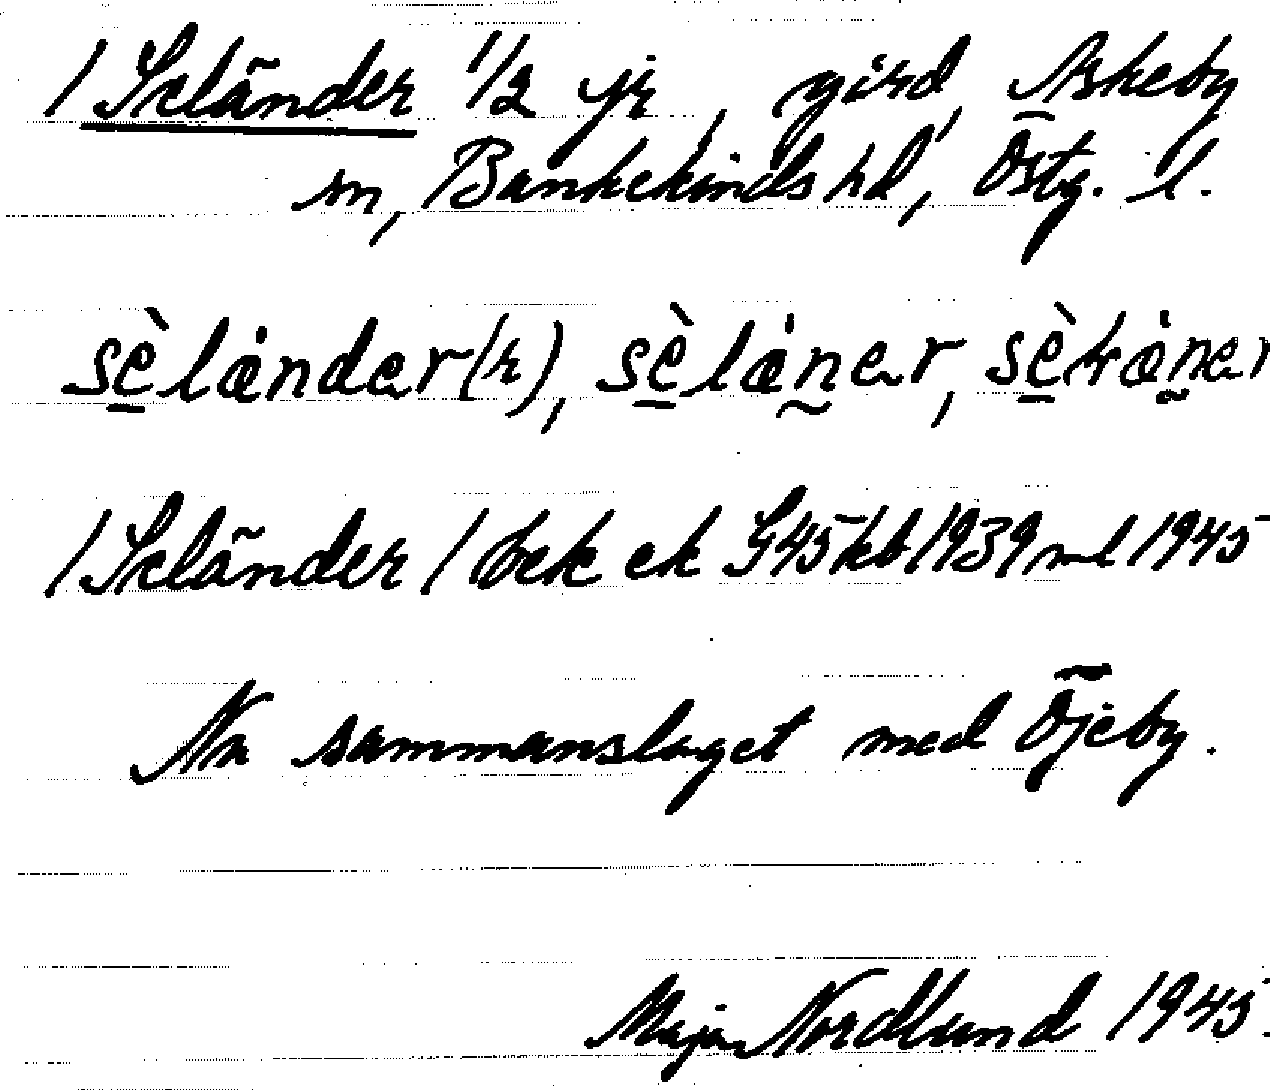 / Seländer 1/2 yr, gård, Askeby
sn, Bankekinds hd, Östg. l.
sèländer(h), sèläner, sèkäner
/ Seländer / bek ek G45 kb 1939 ml 1945
Nu sammanslaget med Öjeby.
Maja Nordlund 1945.